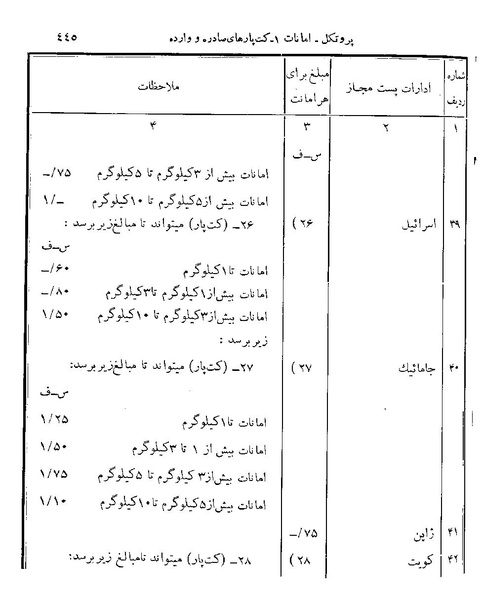 پروتکل ـ امانات ۱ـ کت‌پارهای صادره و وارده ۴۴۵
شماره ردیف ادارات پست مجاز مبلغ برای هر امانت ملاحظات
۱ ۲ ۳ ۴
س‌ـ‌ف
امانات بیش از ۳کیلوگرم تا ۵کیلوگرم ۷۵/ـ
امانات بیش از۵کیلوگرم تا ۱۰کیلوگرم ـ/۱
۳۹ اسرائیل ۲۶ ) ۲۶ـ (کت‌پار) میتواند تا مبالغ‌زیر برسد :
س‌ـ‌ف
امانات تا۱کیلوگرم ۶۰/ـ
امانات بیش‌از۱کیلوگرم تا۳کیلوگرم ۸۰/ـ
امانات بیش‌از۳کیلوگرم تا ۱۰کیلوگرم ۱/۵۰
زیر برسد :
۴۰ جامائیك ۲۷ ) ۲۷ـ (کت‌پار) میتواند تا مبالغ‌زیر برسد:
س‌ـ‌ف
امانات تا۱کیلوگرم ۱/۲۵
امانات بیش از ۱ تا ۳کیلوگرم ۱/۵۰
امانات بیش‌از۳ کیلوگرم تا ۵کیلوگرم ۱/۷۵
امانات بیش‌از۵کیلوگرم تا۱۰کیلوگرم ۱/۱۰
۴۱ ژاپن ۷۵/ـ
۴۲ کویت ۲۸ ) ۲۸ـ (کت‌پار) میتواند تامبالغ زیربرسد: